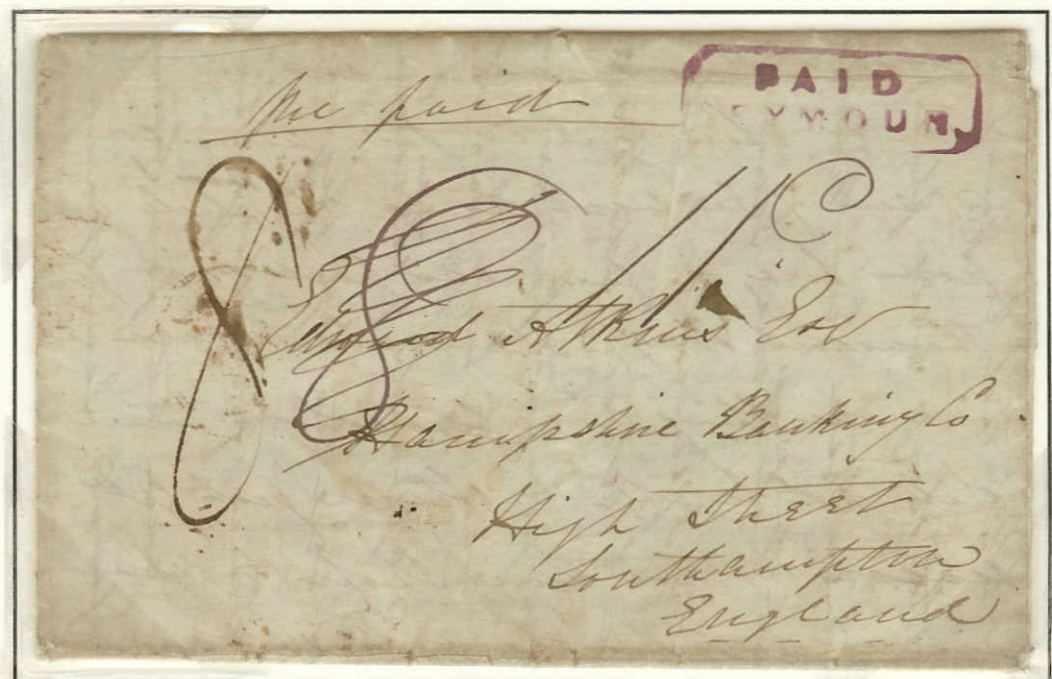 Pre paid
PAID
EYMOUR
8 8 1/
Atkins Esq
Hampshire Banking Co
High Street
Southampton
England